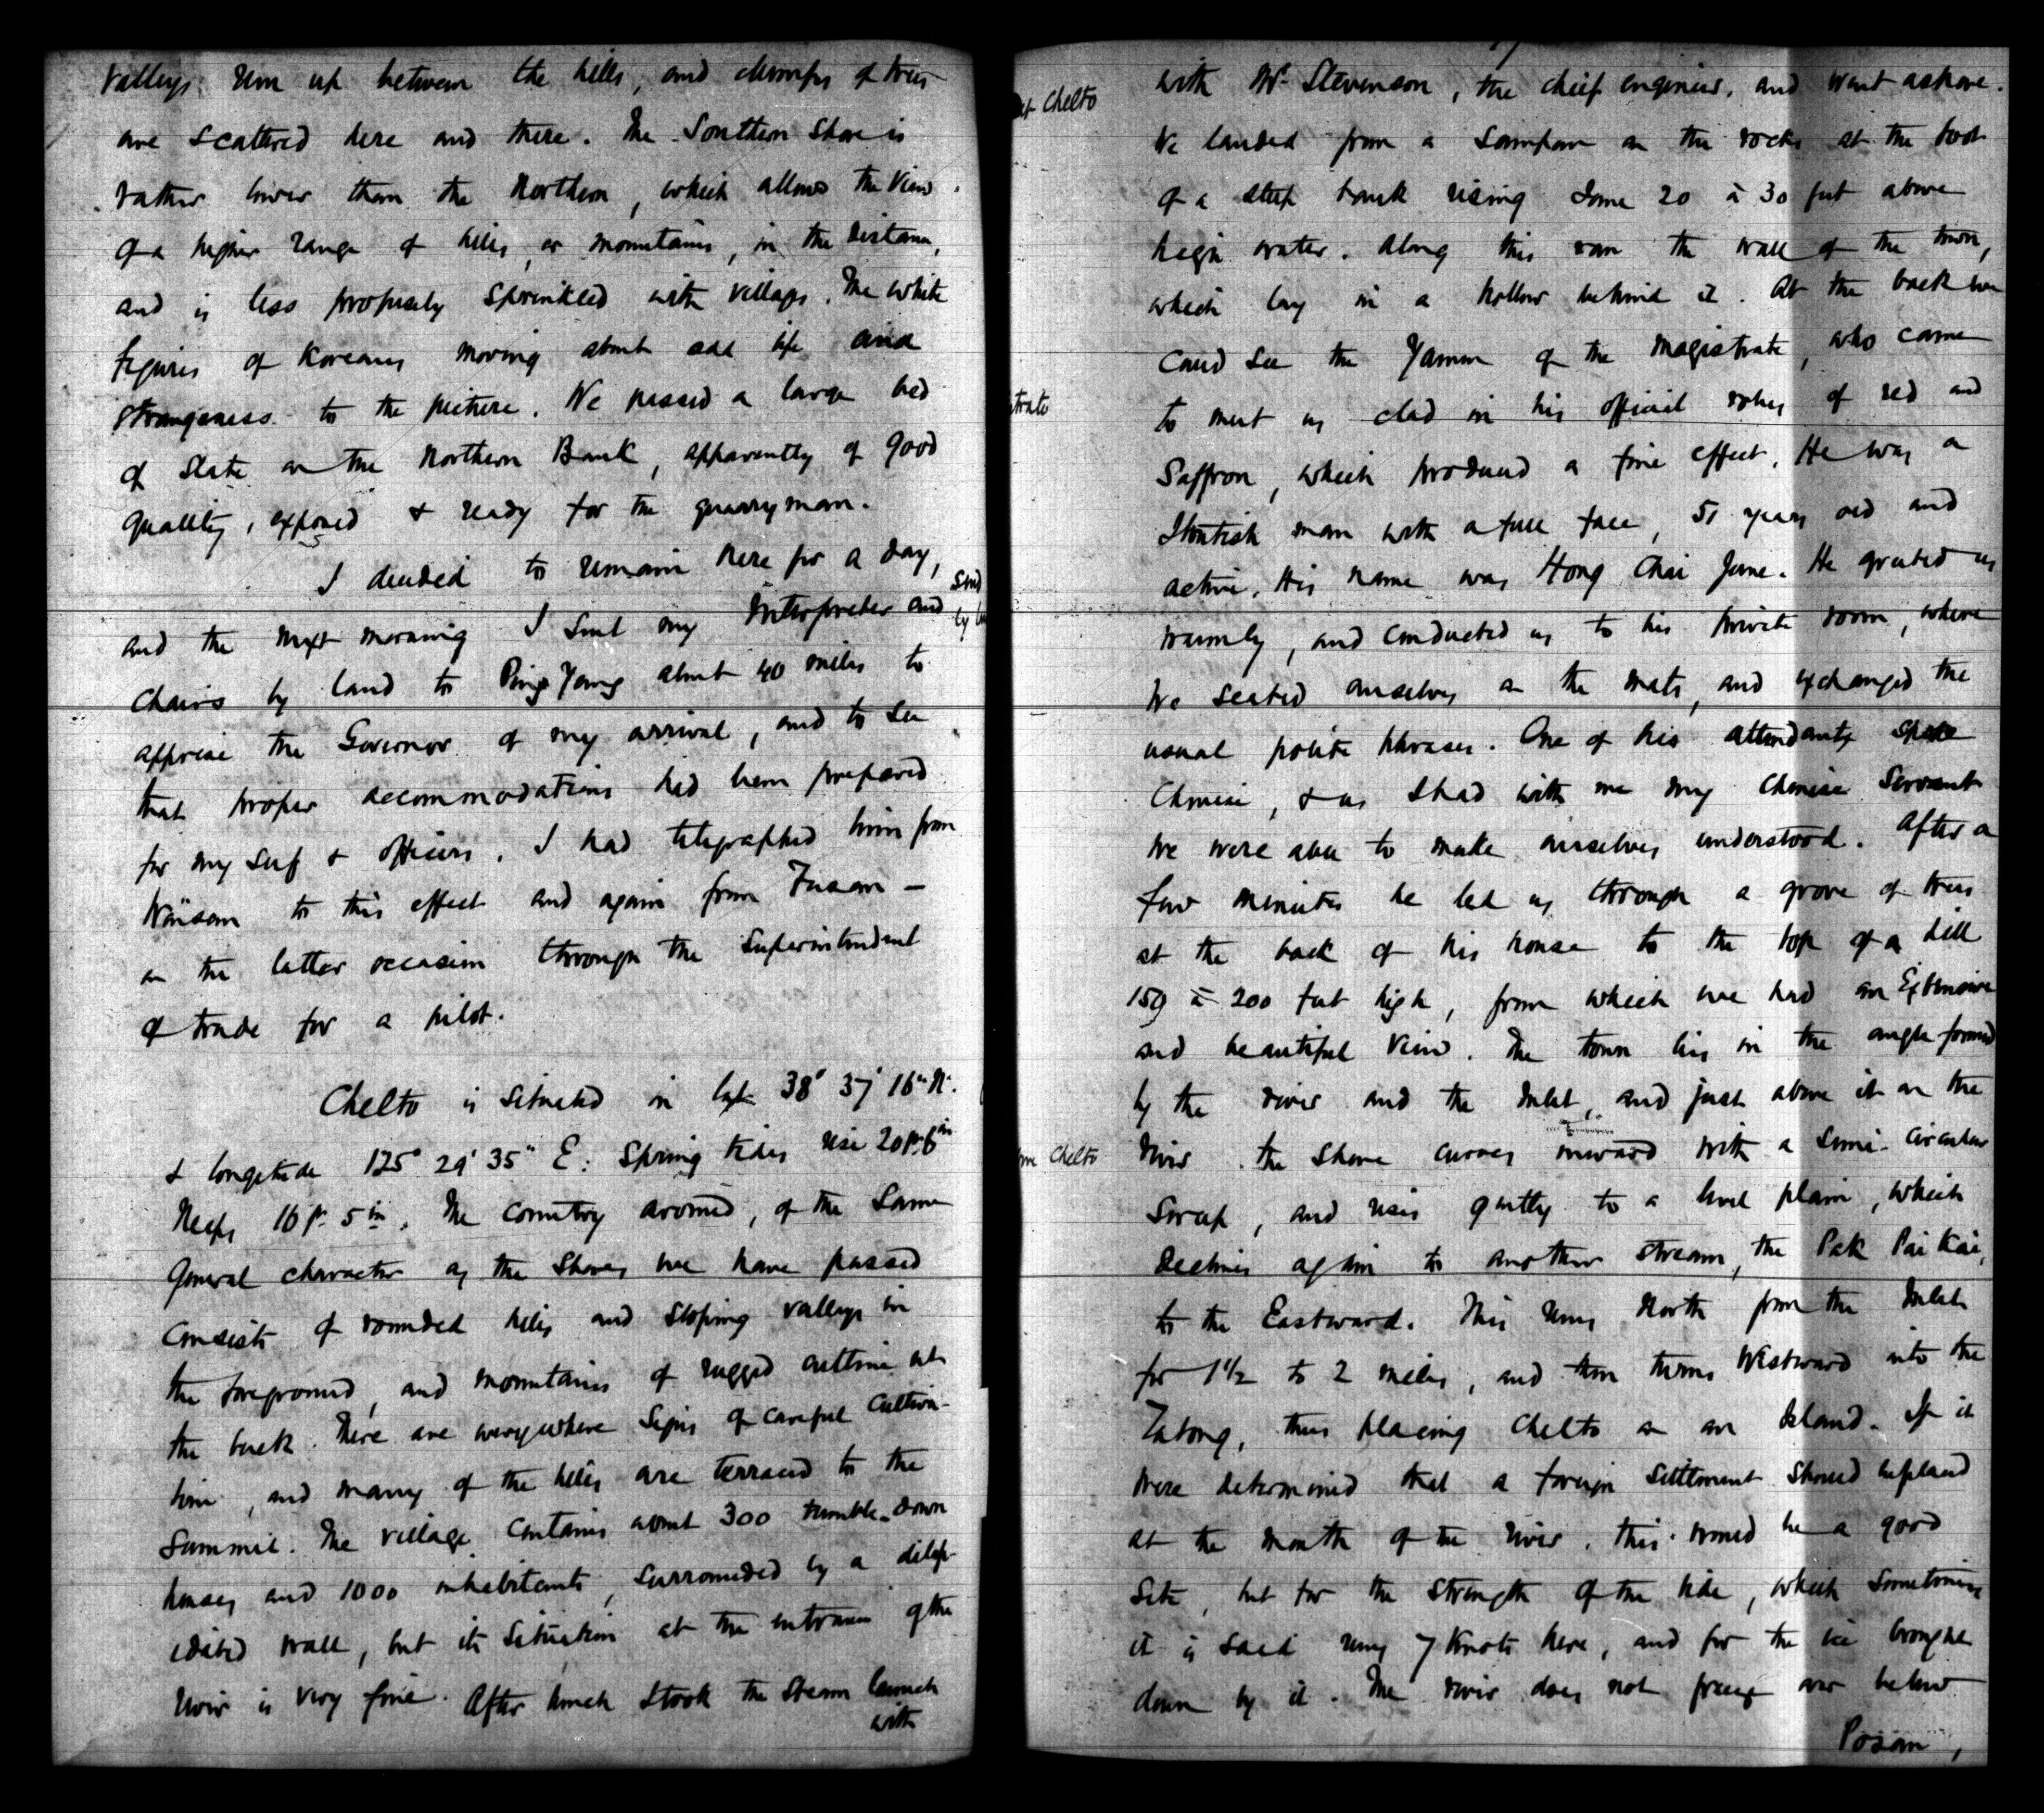 valleys run up between the hills, and clumps of trees
are scattered here and there. The Southern Shore is
rather lower than the Northern, which allows the view
of a higher range of hills, or mountains, in the distance,
and is less profusely sprinkled with villages. The white
figures of Koreans moving about add life and
strangeness to the picture. We passed a large bed
of slate on the Northern Bank, apparently of good
quality, exposed & ready for the quarryman.
I decided to remain here for a day,
and the next morning I sent my Interpreter and
chairs by land to Ping Yang about 40 miles to
apprise the Governor of my arrival, and to see
that proper accommodations had been prepared
for my self & officers. I had telegraphed him from
Wönsan to this effect and again from Fusan —
on the latter occasion through the Superintendent
of trade for a pilot.
Chelto is situated in lat 38° 37' 16" N.
& longitude 125° 29' 35" E: Spring tides rise 20ft. 6in
Neaps 16ft. 5in. The country around, of the same
general character as the Shores we have passed
consists of rounded hills and sloping valleys in
the foreground, and mountains of rugged outline at
the back. There are everywhere signs of careful cultiva-
tion, and many of the hills are terraced to the
summit. The village contains about 300 tumble-down
houses and 1000 inhabitants, surrounded by a dilap-
idated wall, but its situation at the entrance of the
river is very fine. After lunch I took the Steam launch
with
with Mr. Stevenson, the chief engineer, and went ashore.
at Chelto
We landed from a Sampan on the rocks at the foot
of a steep bank rising some 20 à 30 feet above
high water. Along this ran the wall of the town,
which lay in a hollow behind it. At the back we
could see the Yamun of the magistrate, who came
to meet us clad in his official robes of red and
Saffron, which produced a fine effect. He was a
Stoutish man with a full face, 51 years old and
active. His name was Hong Chai June. He greeted us
warmly, and conducted us to his private room, where
we seated ourselves on the mats, and exchanged the
usual polite phrases. One of his attendants spoke
Chinese, & as I had with me my Chinese Servant
we were able to make ourselves understood. After a
few minutes he led us through a grove of trees
at the back of his house to the top of a hill
150 à 200 feet high, from which we had an Extensive
and beautiful view. The town lies in the angle formed
by the river and the Inlet, and just above it on the
Chelto
river the shore curves inward with a Semi-circular
sweep, and rises gently to a level plain, which
declines again to another stream, the Pak Pai Kai,
to the Eastward. This runs North from the Inlet
for 1 1/2 to 2 miles, and then turns Westward into the
Tatong, thus placing Chelto on an Island. If it
were determined that a foreign Settlement should be placed
at the mouth of the river, this would be a good
site, but for the strength of the tide, which sometimes
it is said runs 7 knots here, and for the ice brought
down by it. The river does not freeze over below
Posan,